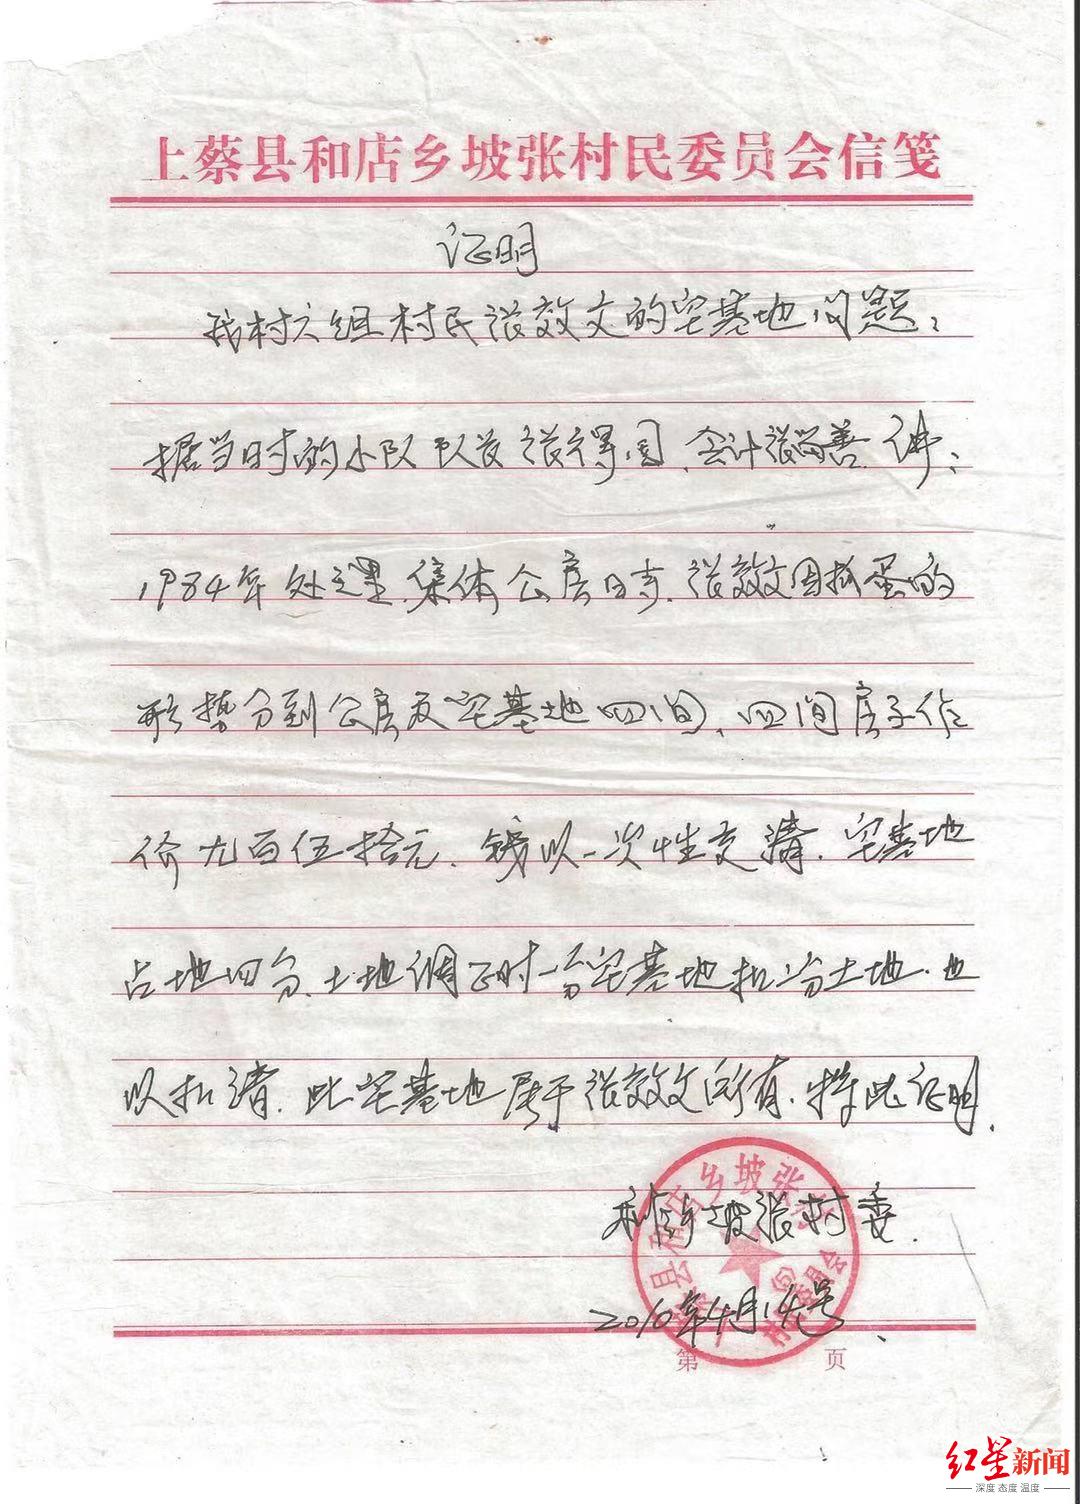 上蔡县和店乡坡张村民委员会信笺
证明
我村六组村民张效文的宅基地问题:
据当时的小队队长张得周、会计张留善讲:
1984年处理集体公房时,张效文因抓蛋的
形势分到公房及宅基地四间,四间房子作
价九百伍拾元、钱以一次性交清.宅基地
占地四分、土地调正时一分宅基地扣二分土地.也
以扣清.此宅基地属于张效文所有.特此证明.
和店乡坡张村委.
2010年4月14号
第 页
红星新闻
深度 态度 温度